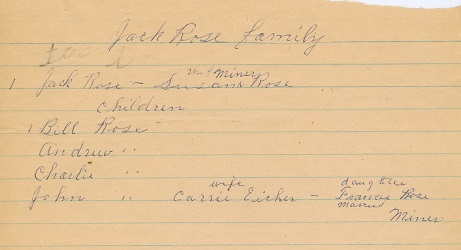 Jack Rose Family
1 Jack Rose - Susan Miner Rose
Children
1 Bill Rose
Andrew "
Charlie "
John " Carrie Eicher - wife daughter Francis Rose
married
Miner